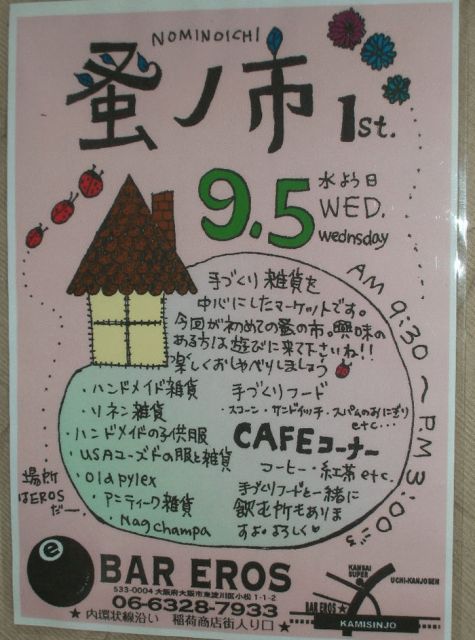 NOMINOICHI
蚤ノ市 1st.
9.5 水よう日
WED.
wednsday
AM 9:30 〜 PM 3:00ごろ
手づくり雑貨を
中心にしたマーケットです。
今回が初めての蚤の市。興味の
ある方は遊びに来て下さいね!!
楽しくおしゃべりしましょう
・ハンドメイド雑貨
・リネン雑貨
・ハンドメイドの子供服
・USAユーズドの服と雑貨
・Old pylex
・アンティーク雑貨
・Nag champa
手づくりフード
スコーン・サンドイッチ・スパムのおにぎり
etc...
CAFEコーナー
コーヒー・紅茶 etc.
手づくりフードと一緒に
飲む所もありま
すよ。よろしく♡
場所
はEROS
だー。
e
BAR EROS
533-0004 大阪府大阪市東淀川区小松 1-1-2
06-6328-7933
★ 内環状線沿い 稲荷商店街入り口 ★
KANSAI
SUPER
UCHI-KANJOSEN
BAR EROS ★
KAMISINJO